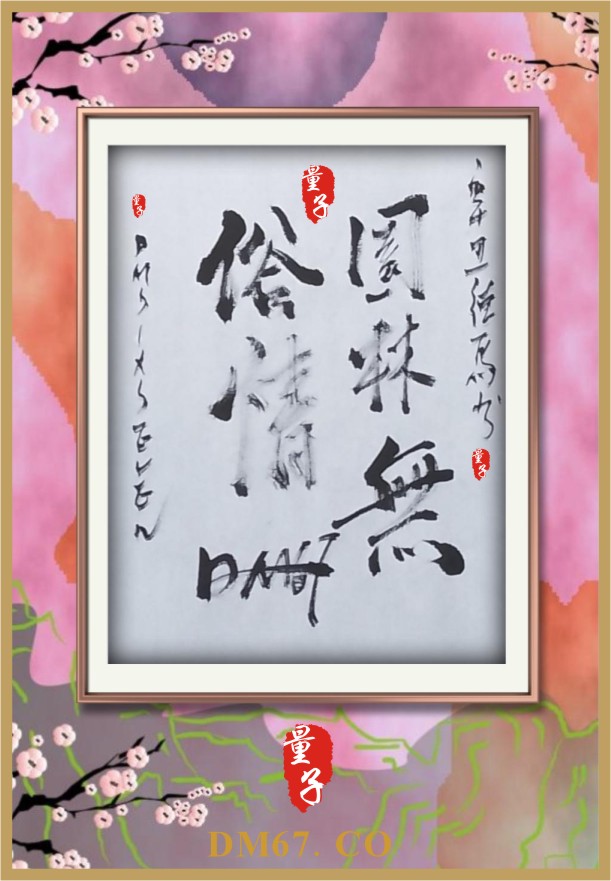 量子
園林無
俗情
量子
DMSIXSEVEN
量子
量子
DM67. CO